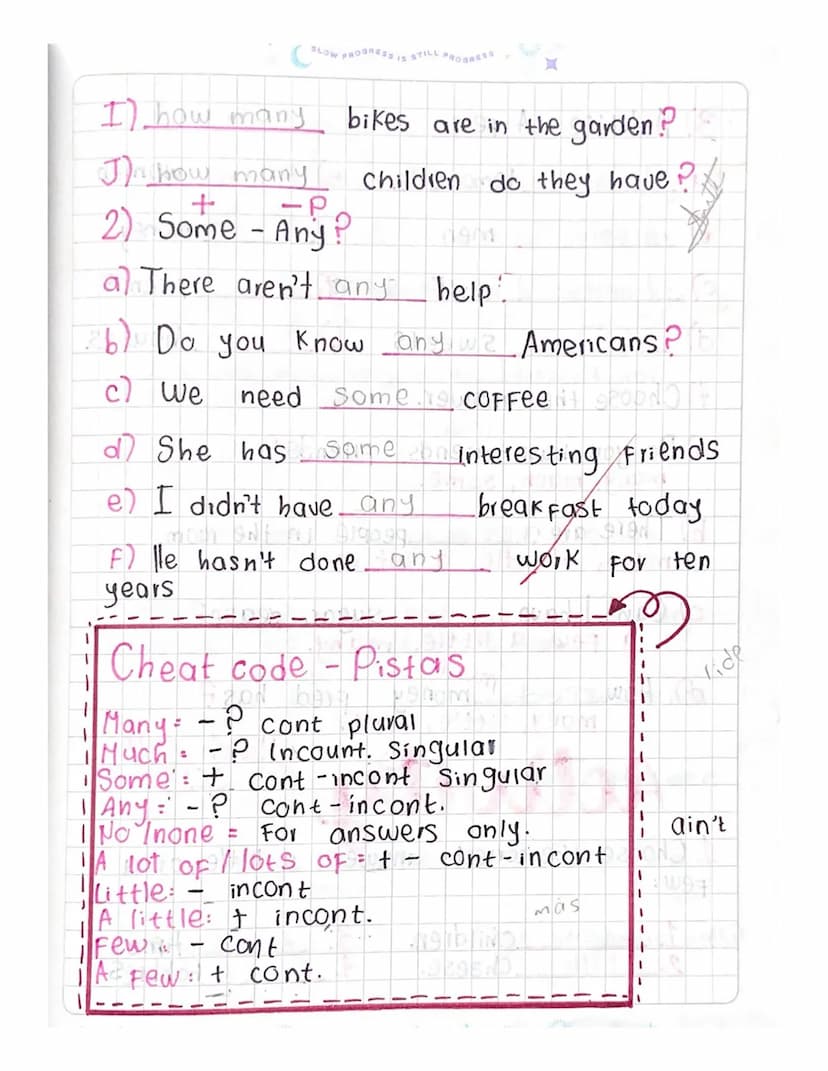 SLOW PROGRESS IS STILL PROGRESS
I) how many bikes are in the garden?
J) how many children do they have?
+ - ?
2) Some - Any?
a) There aren't any help.
b) Do you know any Americans?
c) We need some coffee
d) She has some interesting friends
e) I didn't have any breakfast today
f) He hasn't done any work for ten
years
Cheat code - Pistas
Many: - ? cont plural
Much: - ? Incount. Singular
Some: + cont - incont Singular
Any: - ? cont - incont.
No/none = For answers only.
ain't
A lot of / lots of: + - cont - incont
Little: - incont
A little: + incont.
más
Few: - cont
A few: + cont.